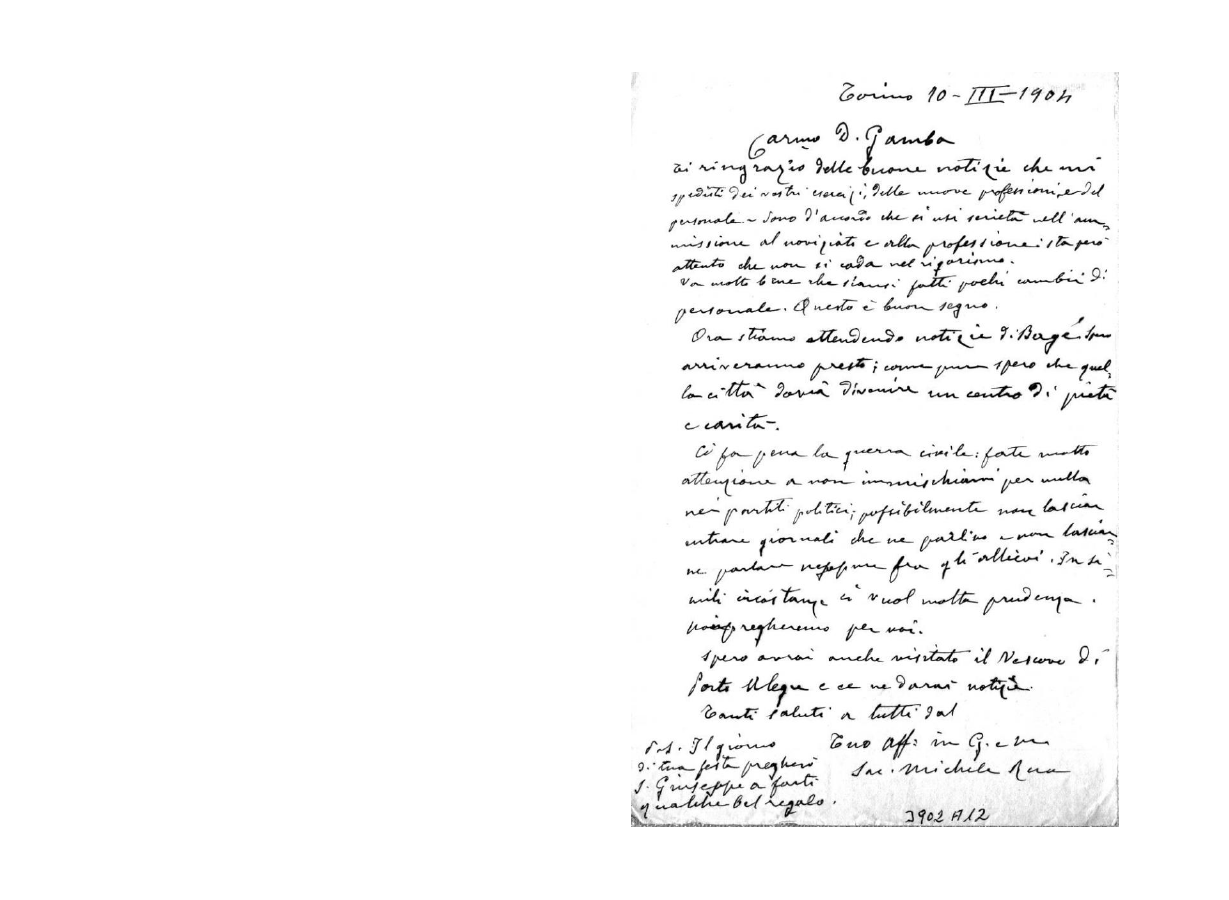 Torino 10-III-1904
Carmo D. Gamba
Ti ringrazio delle buone notizie che mi
spedisti dei vostri esercizi, delle nuove professioni, e del
personale - Sono d'accordo che si usi serietà nell'am=
missione al noviziato e alla professione: sta però
attento che non si cada nel rigorismo.
Va molto bene che siansi fatti pochi cambii di
personale. Questo è buon segno.
Ora stiamo attendendo notizie di Bagé. Spero
arriveranno presto; come pure spero che quel=
la città dovrà divenire un centro di pietà
e carità.
Ci fa pena la guerra civile: fate molto
attenzione a non immischiarvi per nulla
nei partiti politici; possibilmente non lasciar
entrare giornali che ne parlino e non lasciar=
ne parlare neppure fra gli allievi. In si=
mili circostanze ci vuol molta prudenza.
Noi pregheremo per voi.
Spero avrai anche visitato il Vescovo di
Porto Alegre e ce ne darai notizie.
Tanti saluti a tutti dal
Tuo Aff: in G. e M.
Sac. Michele Rua
P.S. Il giorno
di tua festa pregherò
S. Giuseppe a farti
qualche bel regalo.
3902 A12